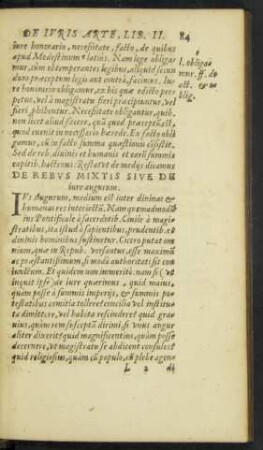 DE IVRIS ARTE, LIB. II. 84
iure honorario, necessitate, facto, de quibus
apud Modestinum latius. Nam lege obliga
mur, cùm obtemperantes legibus, aliquid secun
dum præceptum legis aut contrà, facimus. Iu
re honorario obligantur, ex his quæ edicto per
petuo, vel à magistratu fieri præcipiuntur, vel
fieri prohibentur. Necessitate obligantur, qui-
non licet aliud facere, quàm quod præceptũ est,
quod euenit in necessario hærede. Ex facto obli
gamur, cùm in facto summa quæstionis cōsistit.
Sed de reb. diuinis et humanis et earū summis
capitib. hactenus. Restat vt de medijs dicamus
DE REBVS MIXTIS SIVE DE
iure augurum.
IVs Augurum, medium est inter diuinas &
humanas res interiectũ. Nam quemadmodũ
ius Pontificale à sacerdotib. Ciuile à magi-
stratibus, ita istud à sapientibus, prudentib. et
dentibus hominibus sustinetur. Cicero putat om
nium, quæ in Repub. versantur, esse maximũ
ac præstantissimum, si modò authoritati sit con
iunctum. Et quidem non immeritò. nam si (vt
inquit ipse) de iure quærimus, quid maius,
quàm posse à summis imperijs, & summis po-
testatibus comitia tollere? concilia vel instituta
dimittere, vel habita rescindere? quid gra
uius, quàm rem susceptã dirimi, si vnus augur
aliter dixerit? quid magnificentius, quàm posse
decernere, vt magistratu se abdicent consules?
quid religiosius, quàm cũ populo, cũ plebe agen
L 2 di
l. obliga
mur. ff. de